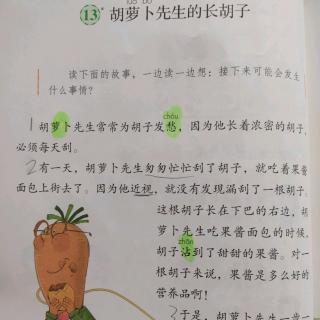 luó bo
13* 胡萝卜先生的长胡子
读下面的故事，一边读一边想：接下来可能会发生
什么事情？
chóu
1 胡萝卜先生常常为胡子发愁，因为他长着浓密的胡子，
必须每天刮。
2 有一天，胡萝卜先生匆匆忙忙刮了胡子，就吃着果酱
面包上街去了。因为他近视，就没有发现漏刮了一根胡子。
这根胡子长在下巴的右边，胡
萝卜先生吃果酱面包的时候，
zhān
胡子沾到了甜甜的果酱。对一
根胡子来说，果酱是多么好的
营养品啊！
3 于是，胡萝卜先生一步一